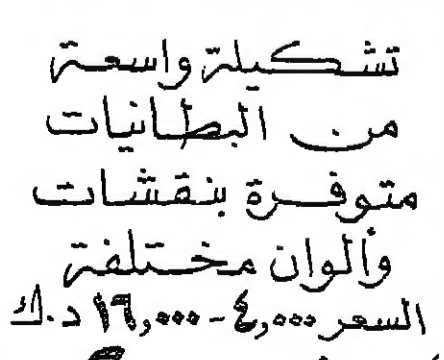 تشكيلة واسعة
من البطانيات
متوفرة بنقشات
وألوان مختلفة
السعر ٤,٠٠٠ - ١٦,٠٠٠ د.ك